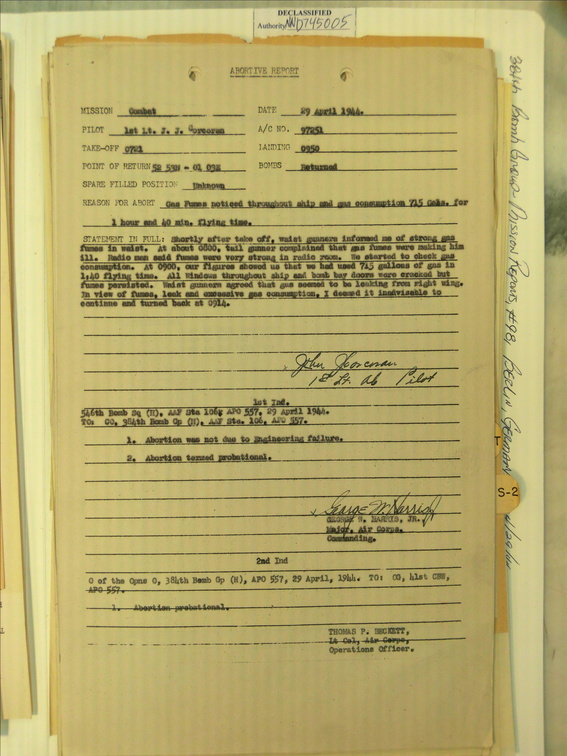 DECLASSIFIED
Authority NND745005
ABORTIVE REPORT
MISSION Combat DATE 29 April 1944.
PILOT 1st Lt. J. J. Corcoran A/C NO. 97251
TAKE-OFF 0721 LANDING 0950
POINT OF RETURN 52 53N - 01 03E BOMBS Returned
SPARE FILLED POSITION Unknown
REASON FOR ABORT Gas Fumes noticed throughout ship and gas consumption 715 Gals. for
1 hour and 40 min. flying time.
STATEMENT IN FULL: Shortly after take off, waist gunners informed me of strong gas
fumes in waist. At about 0800, tail gunner complained that gas fumes were making him
ill. Radio man said fumes were very strong in radio room. We started to check gas
consumption. At 0900, our figures showed us that we had used 715 gallons of gas in
1:40 flying time. All windows throughout ship and bomb bay doors were cracked but
fumes persisted. Waist gunners agreed that gas seemed to be leaking from right wing.
In view of fumes, leak and excessive gas consumption, I deemed it inadvisable to
continue and turned back at 0914.
John J Corcoran
1st Lt. AC Pilot
1st Ind.
546th Bomb Sq (H), AAF Sta 106, APO 557, 29 April 1944.
TO: CO, 384th Bomb Gp (H), AAF Sta. 106, APO 557.
1. Abortion was not due to Engineering failure.
2. Abortion termed probational.
George W. Harris Jr
GEORGE W. HARRIS, JR.
Major, Air Corps.
Commanding.
2nd Ind
O of the Opns O, 384th Bomb Gp (H), APO 557, 29 April, 1944. TO: CO, 41st CBW,
APO 557.
1. Abortion probational.
THOMAS P. BECKETT,
Lt Col, Air Corps,
Operations Officer.
384th Bomb Group Mission Reports, #98, BERLIN, GERMANY
S-2